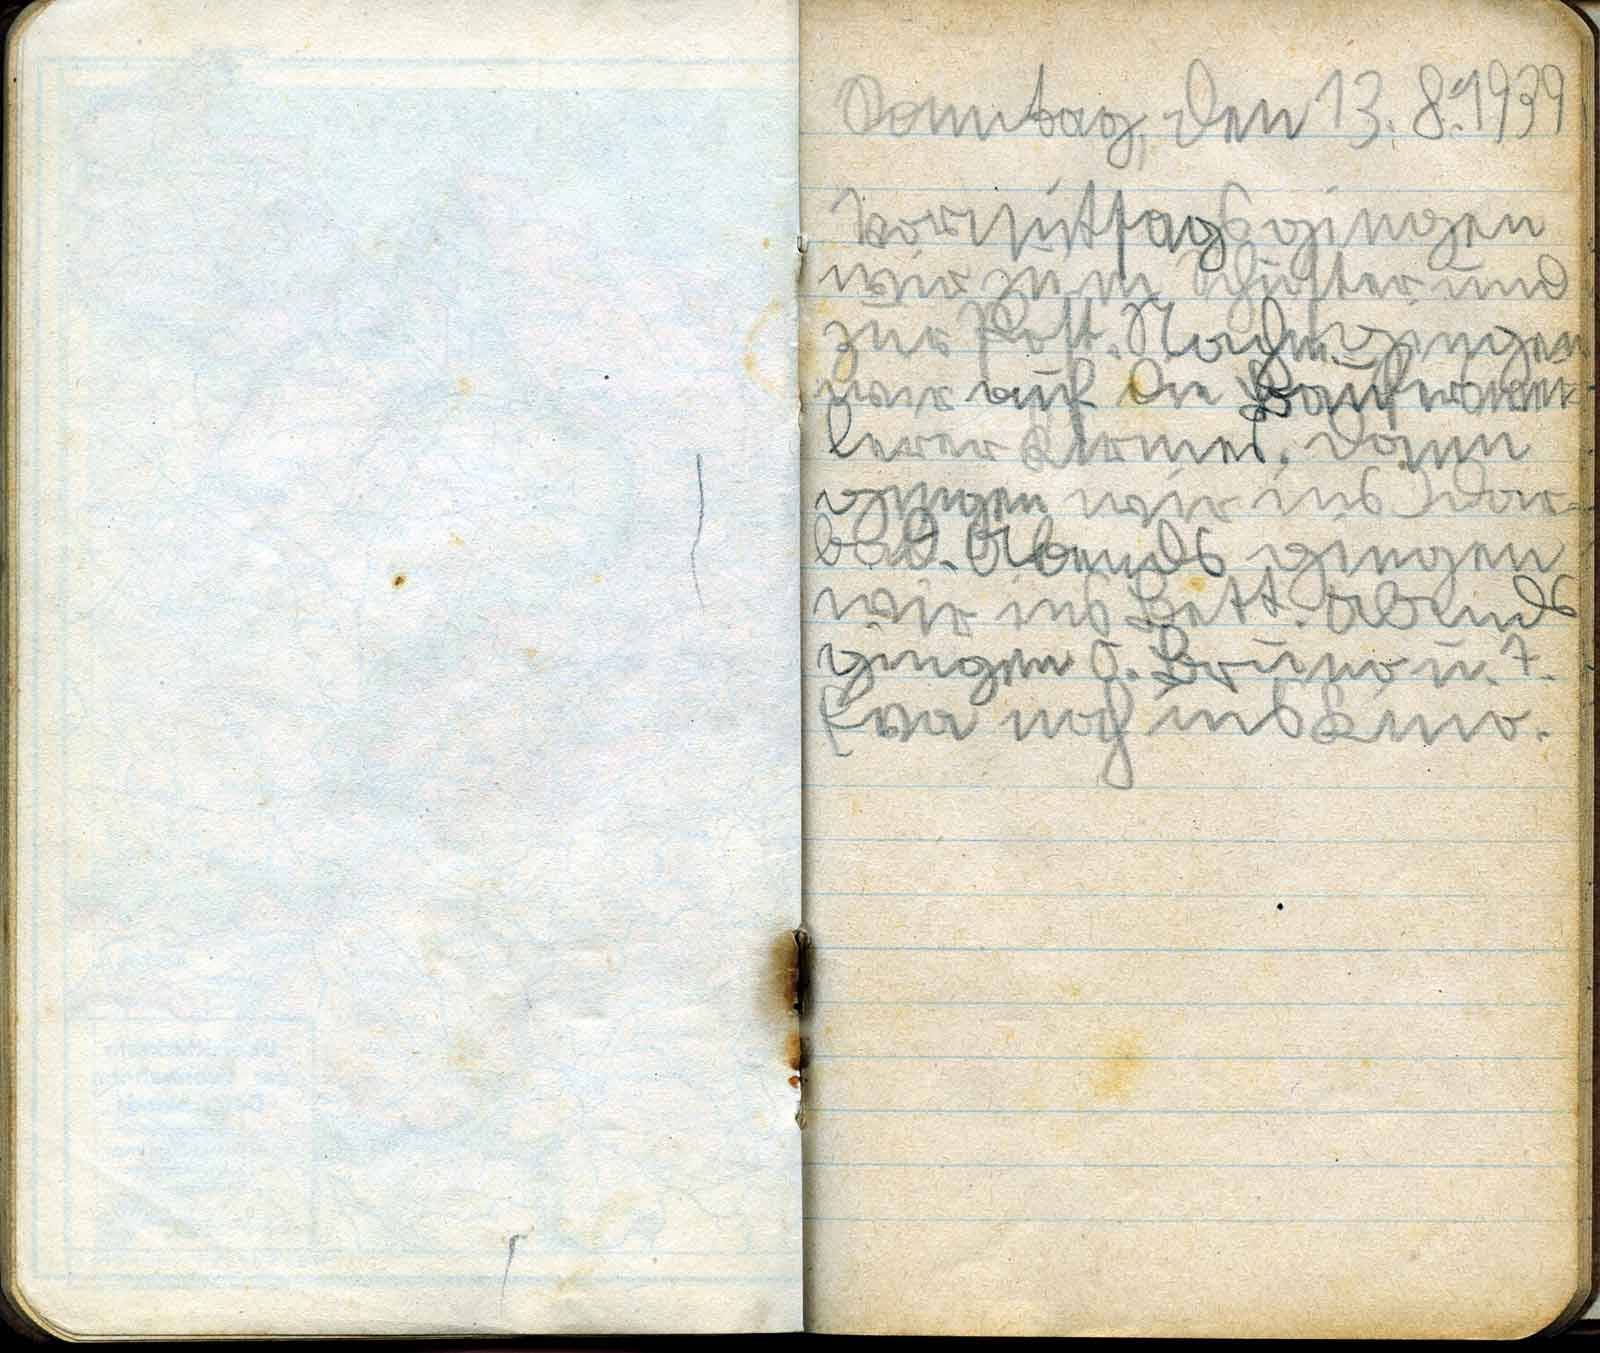 Sonntag, den 13.8.1939
Vormittags gingen
wir zum Schuster und
zur Post. Nachm. gingen
wir auf die
Kirmes. Dann
gingen wir ins
bad. Abends gingen
wir ins Bett. Abends
gingen O. Bruno u. T.
Eva noch ins Kino.